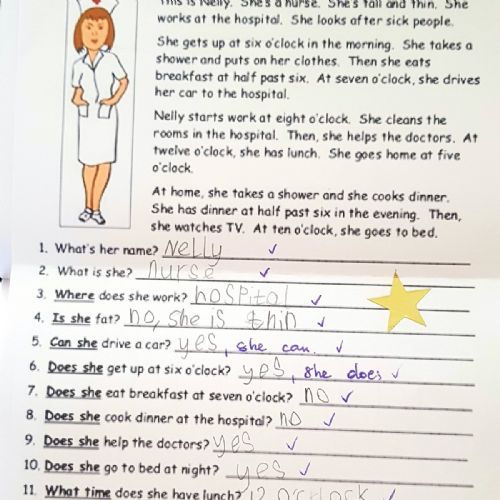 This is Nelly. She's a nurse. She's tall and thin. She
works at the hospital. She looks after sick people.
She gets up at six o'clock in the morning. She takes a
shower and puts on her clothes. Then she eats
breakfast at half past six. At seven o'clock, she drives
her car to the hospital.
Nelly starts work at eight o'clock. She cleans the
rooms in the hospital. Then, she helps the doctors. At
twelve o'clock, she has lunch. She goes home at five
o'clock.
At home, she takes a shower and she cooks dinner.
She has dinner at half past six in the evening. Then,
she watches TV. At ten o'clock, she goes to bed.
1. What's her name? Nelly
2. What is she? nurse
3. Where does she work? hospital
4. Is she fat? no, she is thin
5. Can she drive a car? yes, she can.
6. Does she get up at six o'clock? yes, she does
7. Does she eat breakfast at seven o'clock? no
8. Does she cook dinner at the hospital? no
9. Does she help the doctors? yes
10. Does she go to bed at night? yes
11. What time does she have lunch? 12 o'clock